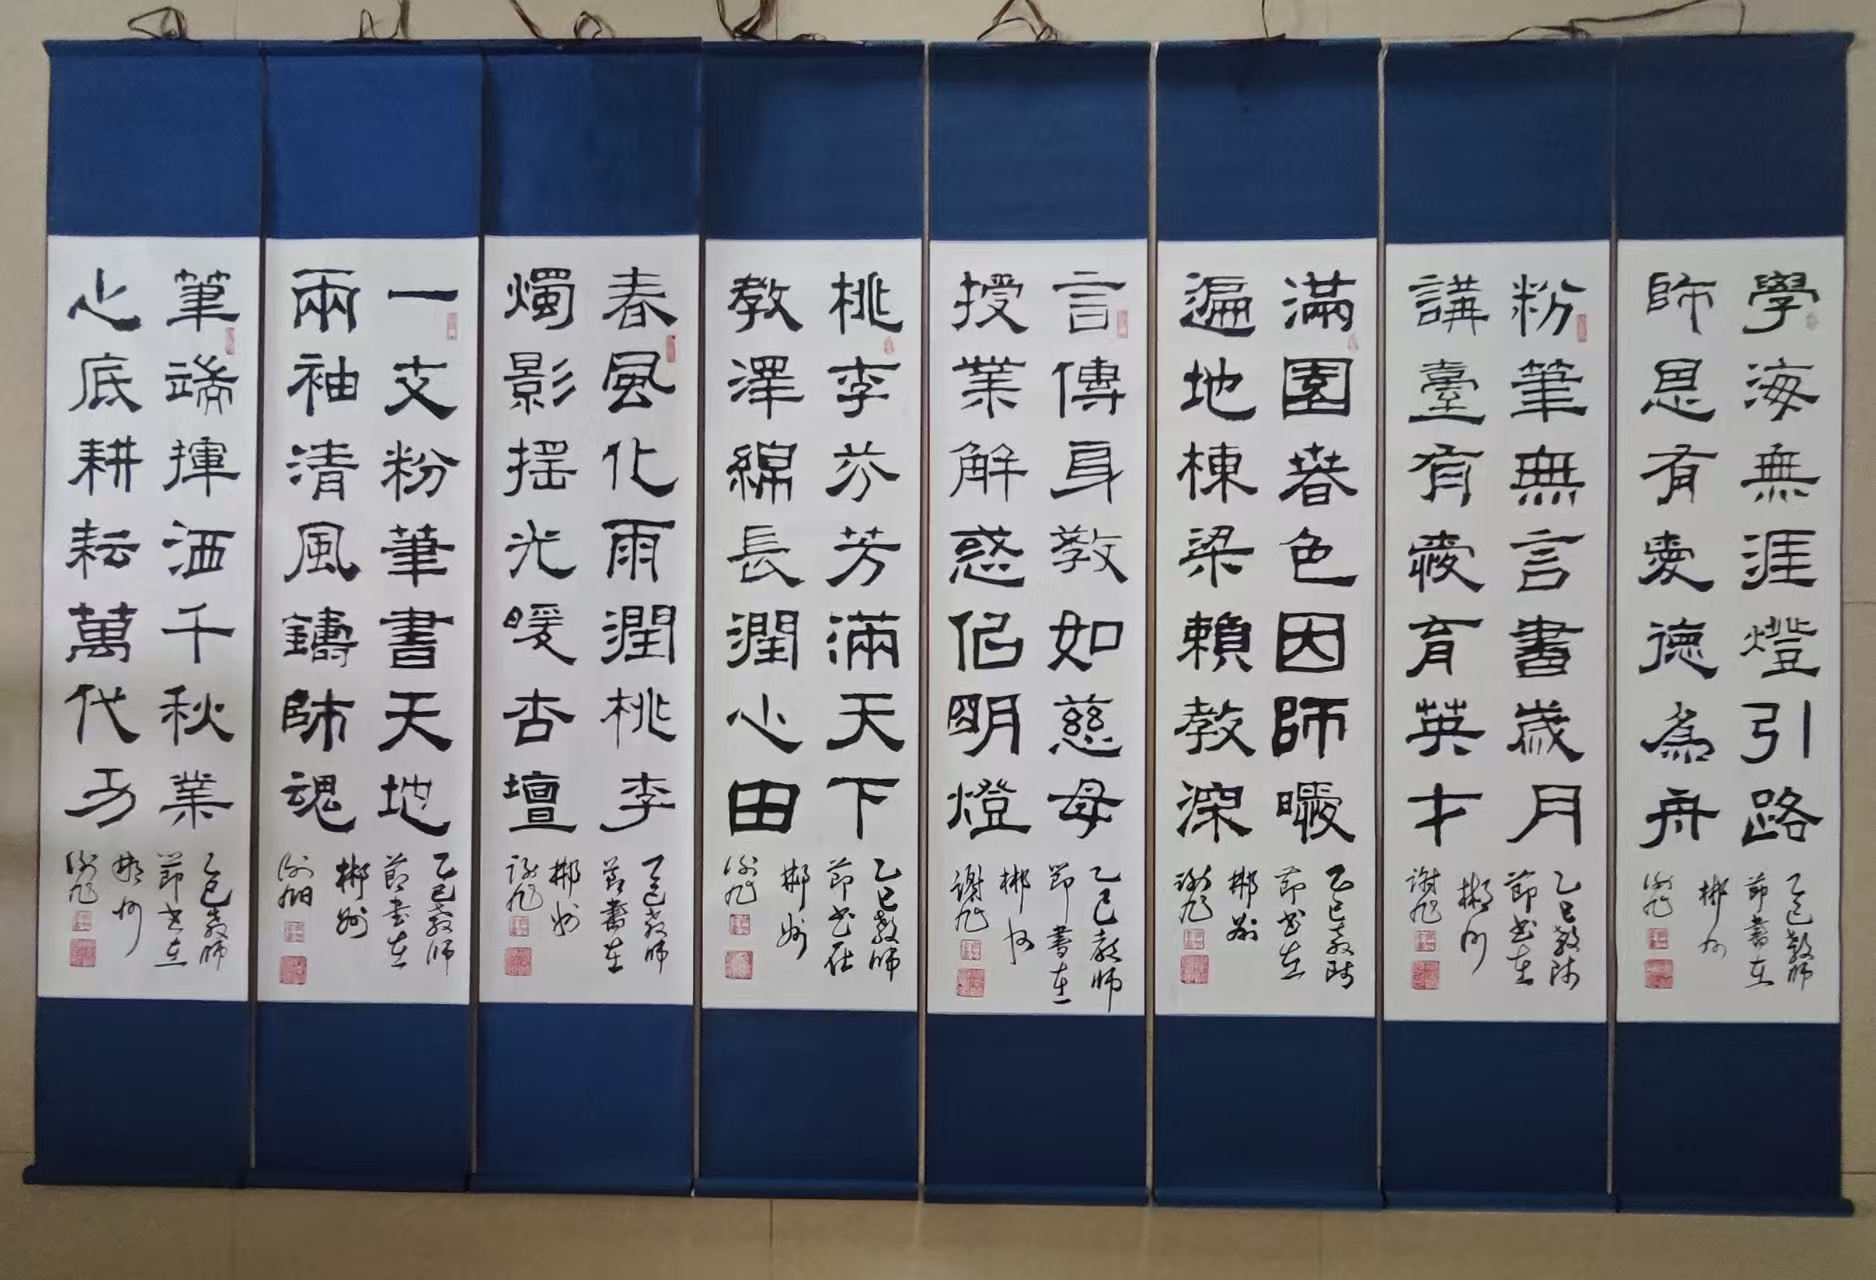 學海無涯燈引路
師恩有愛德為舟
乙巳教師
節書在
郴州
謝旭
粉筆無言書歲月
講臺有愛育英才
乙巳教師
節書在
郴州
謝旭
滿園春色因師暖
遍地棟梁賴教深
乙巳教師
節書在
郴州
謝旭
言傳身教如慈母
授業解惑似明燈
乙巳教師
節書在
郴州
謝旭
桃李芬芳滿天下
教澤綿長潤心田
乙巳教師
節書在
郴州
謝旭
春風化雨潤桃李
燭影搖光暖杏壇
乙巳教師
節書在
郴州
謝旭
一支粉筆書天地
兩袖清風鑄師魂
乙巳教師
節書在
郴州
謝旭
筆端揮洒千秋業
心底耕耘萬代功
乙巳教師
節書在
郴州
謝旭